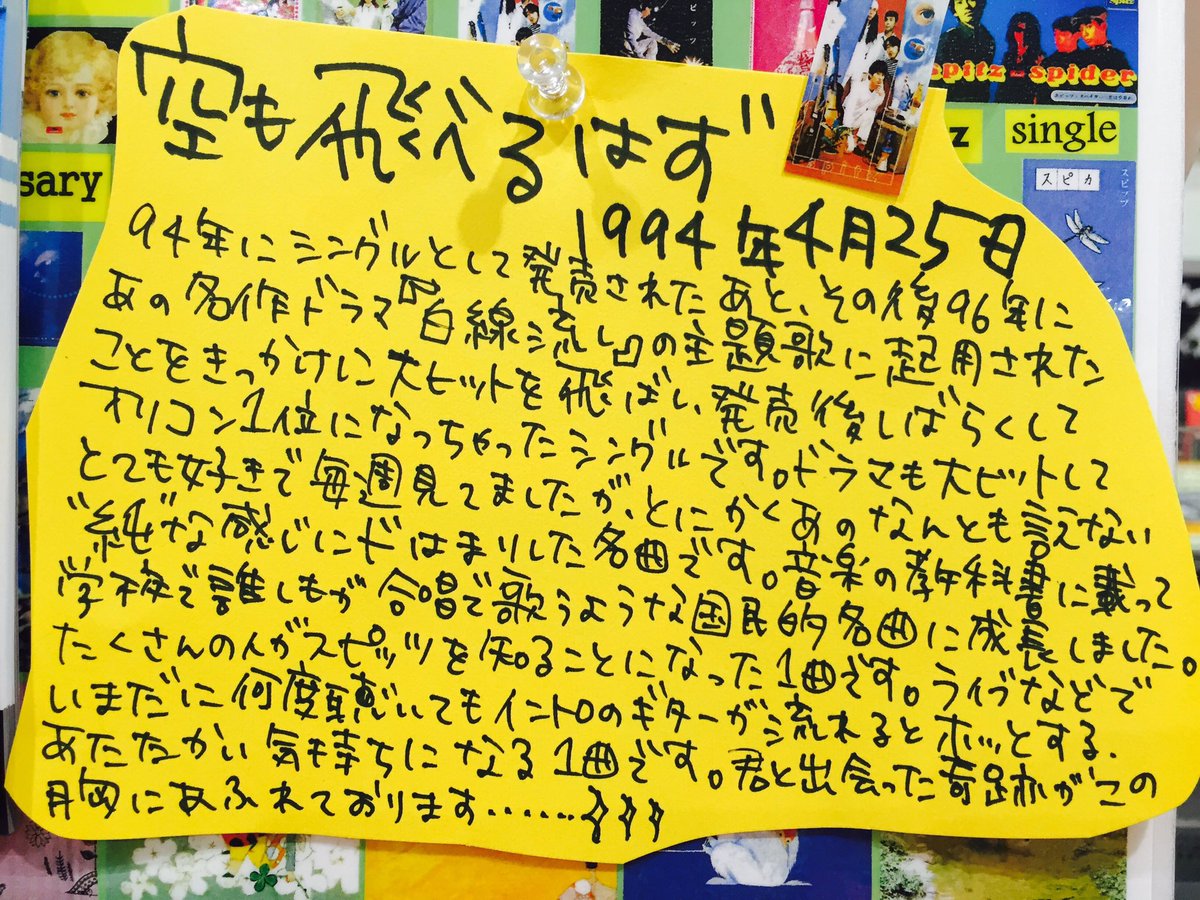 "空も飛べるはず"
1994年4月25日
94年にシングルとして発売されたあと、その後96年に
あの名作ドラマ『白線流し』の主題歌に起用された
ことをきっかけに大ヒットを飛ばし、発売後しばらくして
オリコン1位になっちゃったシングルです。ドラマも大ヒットして
とても好きで毎週見てましたが、とにかくあのなんとも言えない
"純"な感じにドはまりした名曲です。音楽の教科書に載って
学校で誰しもが合唱で歌うような国民的名曲に成長しました。
たくさんの人がスピッツを知ることになった1曲です。ライブなどで
いまだに何度聴いてもイントロのギターが流れるとホッとする、
あたたかい気持ちになる1曲です。君と出会った奇跡がこの
胸にあふれております……
sary
spitz spider
single
スピカ
スピッツ